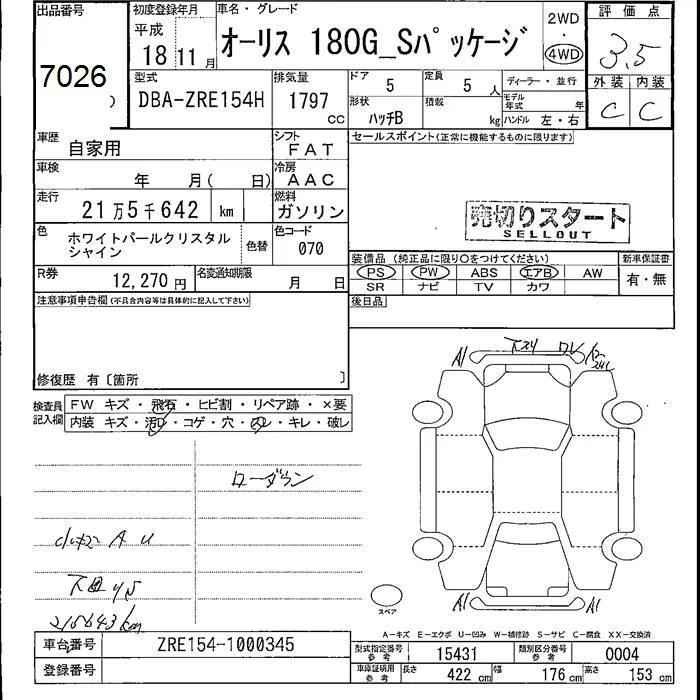 出品番号
7026
初度登録年月
平成
18 11 月
車名・グレード
オーリス 180G_Sパッケージ
2WD
・
4WD
評価点
3.5
外装 内装
C C
型式
DBA-ZRE154H
排気量
1797 CC
ドア 5
形状 ハッチB
定員 5 人
積載 kg
ディーラー・並行
モデル年式 年
ハンドル 左・右
車歴
自家用
シフト
FAT
車検 年 月( 日)
冷房
AAC
走行
21万5千642 km
燃料
ガソリン
色
ホワイトパールクリスタル
シャイン
色替
色コード
070
R券
12,270 円
名変通知期限
月 日
セールスポイント(正常に機能するものに限ります)
売切りスタート
SELLOUT
装備品 (純正品に限り○をつけてください)
PS PW ABS エアB AW
SR ナビ TV カワ
新車保証書
有・無
後日品
注意事項申告欄(不具合内容等は具体的に記入して下さい)
修復歴 有〔箇所 〕
検査員
記入欄
FW キズ・飛石・ヒビ割・リペア跡・×要
内装 キズ・汚レ・コゲ・穴・スレ・キレ・破レ
ローダウン
A U
下回
215643 km
A1
下スリ
ワレ
A1 A1
スペア
A-キズ E-エクボ U-凹み W-補修跡 S-サビ C-腐食 XX-交換済
車台番号
ZRE154-1000345
登録番号
型式指定番号
参考
15431
類別区分番号
参考
0004
車庫証明用
参考
長さ 422 cm
幅 176 cm
高さ 153 cm